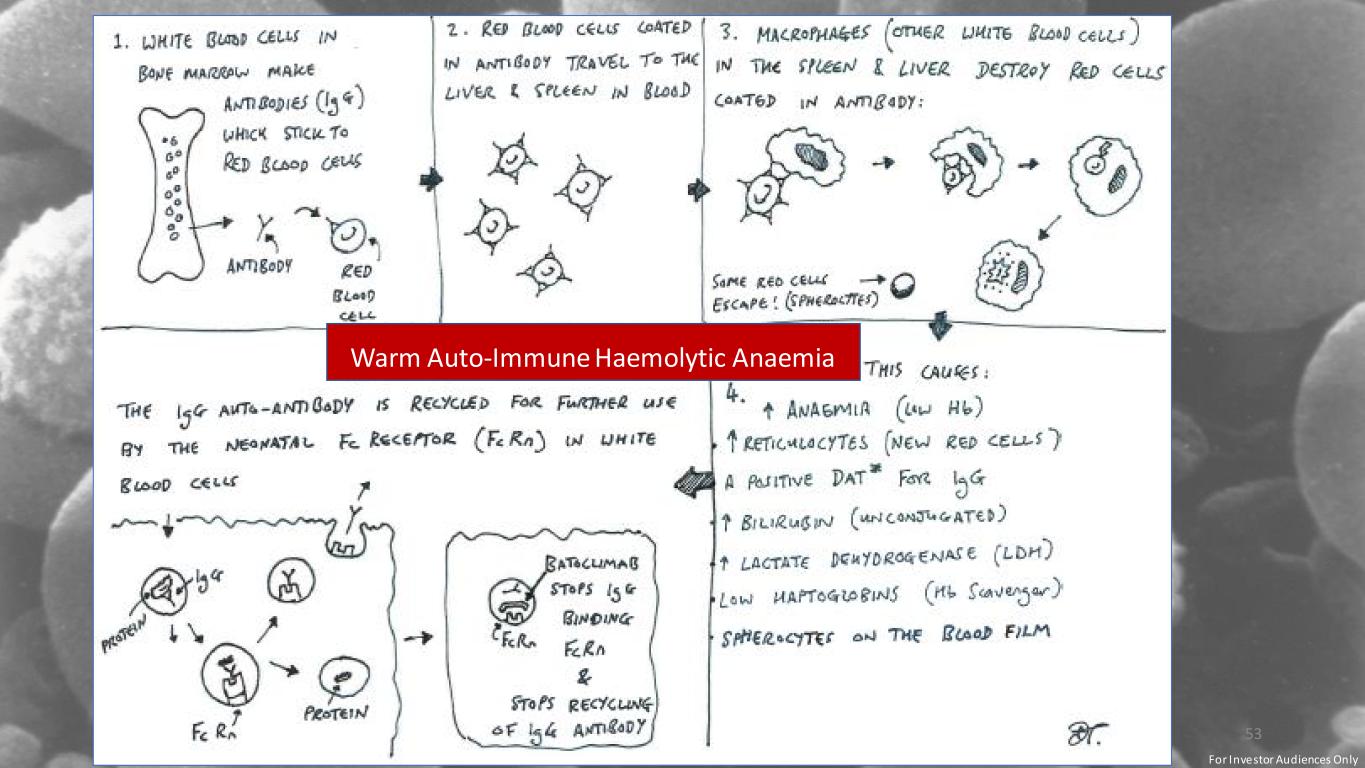 1. WHITE BLOOD CELLS IN
BONE MARROW MAKE
ANTIBODIES (IgG)
WHICK STICK TO
RED BLOOD CELLS
ANTIBODY
RED
BLOOD
CELL
2. RED BLOOD CELLS COATED
IN ANTIBODY TRAVEL TO THE
LIVER & SPLEEN IN BLOOD
3. MACROPHAGES (OTHER WHITE BLOOD CELLS)
IN THE SPLEEN & LIVER DESTROY RED CELLS
COATED IN ANTIBODY:
SOME RED CELLS
ESCAPE! (SPHEROCYTES)
Warm Auto-Immune Haemolytic Anaemia
4. THIS CAUSES:
↑ ANAEMIA (LOW Hb)
• ↑ RETICULOCYTES (NEW RED CELLS)
A POSITIVE DAT* FOR IgG
• ↑ BILIRUBIN (UNCONJUGATED)
• ↑ LACTATE DEHYDROGENASE (LDH)
• LOW HAPTOGLOBINS (Hb Scavenger)
• SPHEROCYTES ON THE BLOOD FILM
THE IgG AUTO-ANTIBODY IS RECYCLED FOR FURTHER USE
BY THE NEONATAL Fc RECEPTOR (FcRn) IN WHITE
BLOOD CELLS
IgG
PROTEIN
FcRn
PROTEIN
BATOCLIMAB
STOPS IgG
BINDING
FcRn
&
STOPS RECYCLING
OF IgG ANTIBODY
FcRn
53
For Investor Audiences Only